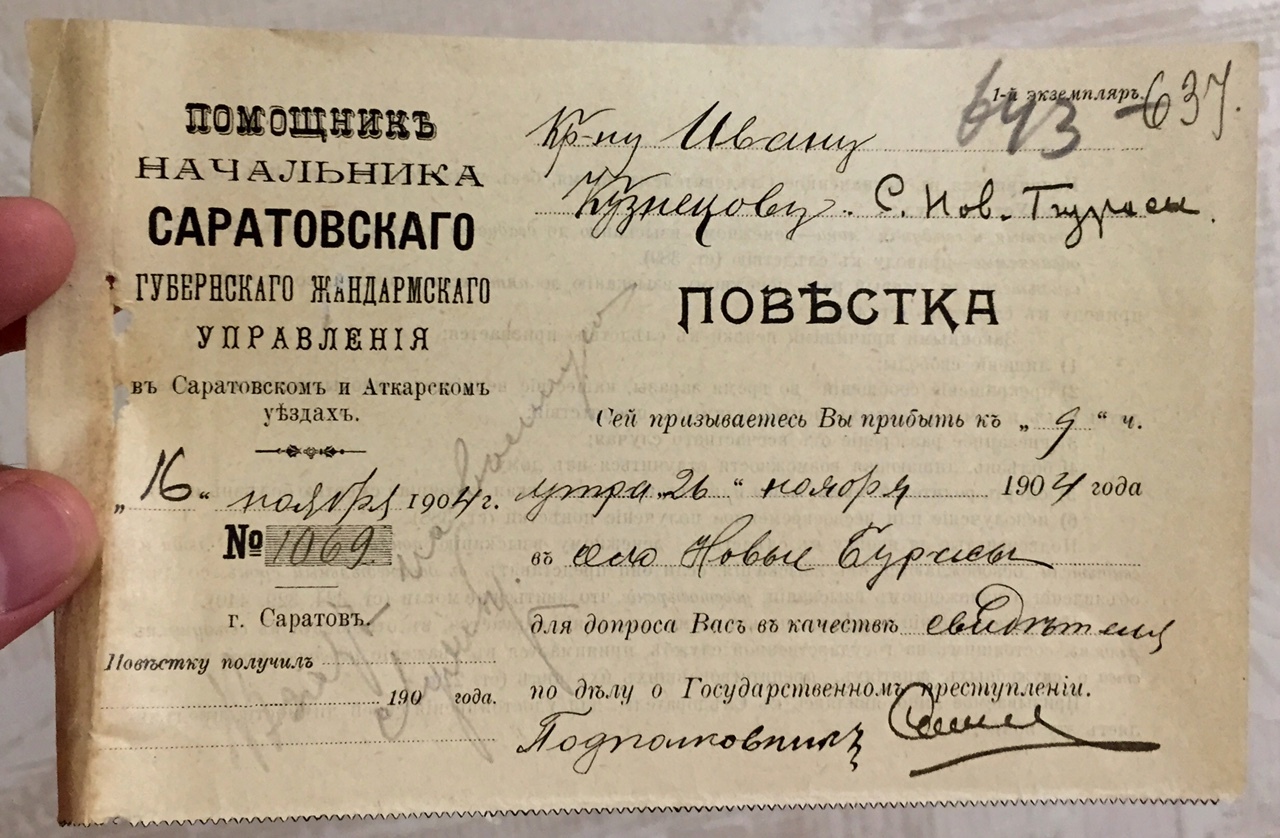 ПОМОЩНИКЪ
НАЧАЛЬНИКА
САРАТОВСКАГО
ГУБЕРНСКАГО ЖАНДАРМСКАГО
УПРАВЛЕНІЯ
въ Саратовскомъ и Аткарскомъ
уѣздахъ.
„16“ ноября 1904 г.
№ 1069
г. Саратовъ.
Повѣстку получилъ
190 года.
1-й экземпляръ.
643 - 637.
Кр-ну Ивану
Кузнецову. С. Нов. Бурасы.
ПОВѢСТКА
Сей призываетесь Вы прибыть къ „9“ ч.
утра „26“ ноября 1904 года
въ село Новые Бурасы
для допроса Васъ въ качествѣ свидѣтеля
по дѣлу о Государственномъ преступленіи.
Подполковникъ